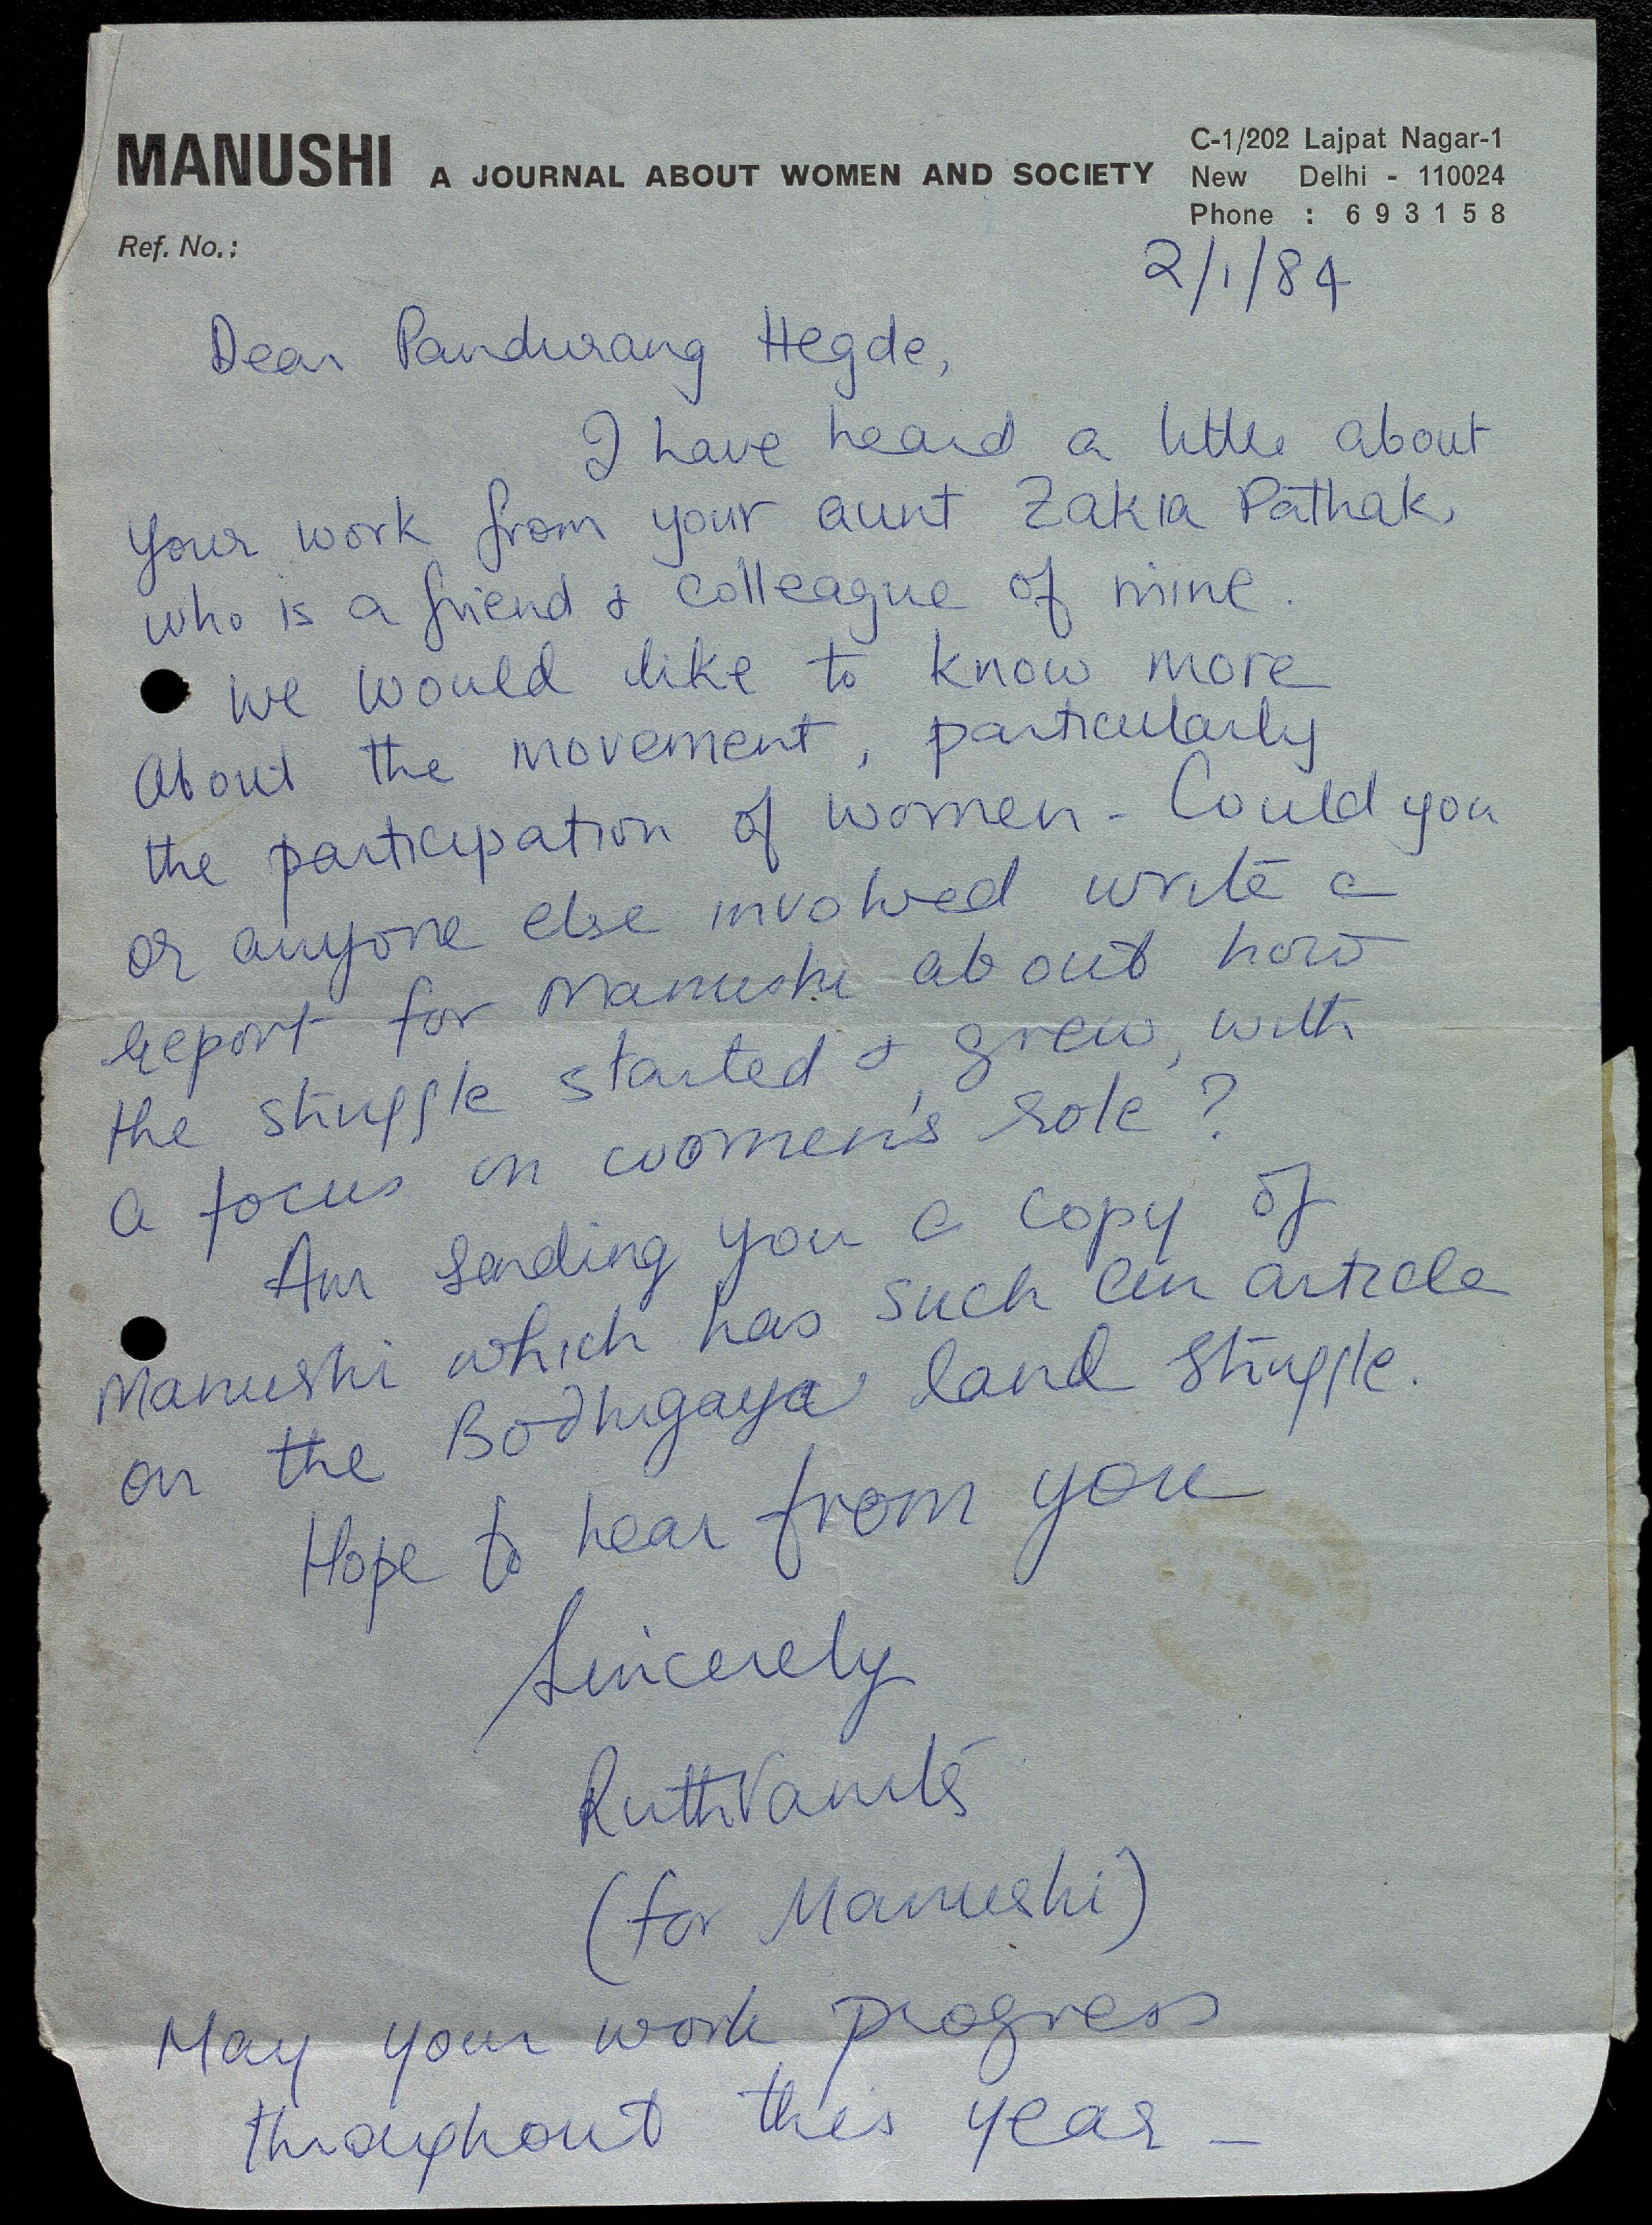 MANUSHI A JOURNAL ABOUT WOMEN AND SOCIETY
C-1/202 Lajpat Nagar-1
New Delhi - 110024
Phone : 693158
Ref. No.:
2/1/84
Dear Pandurang Hegde,
I have heard a little about
your work from your aunt Zakia Pathak,
who is a friend & colleague of mine.
We would like to know more
about the movement, particularly
the participation of women - Could you
or anyone else involved write a
report for Manushi about how
the struggle started & grew, with
a focus on women's role?
Am sending you a copy of
Manushi which has such an article
on the Bodhgaya land struggle.
Hope to hear from you
Sincerely
Ruth Vanita
(for Manushi)
May your work progress
throughout this year -